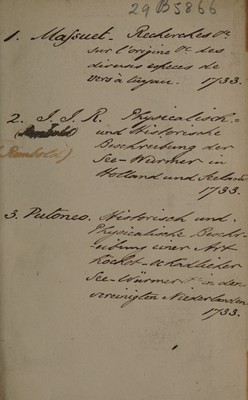 29 B 5866
1. Massuet. Recherches &c.
sur l'origine &c. des
diverses especes de
vers à tuyau. 1733.
2. J. J. R. Physicalisch-
und Historische
(Rembold)
Beschreibung der
See-Würmer in
Holland und Seeland
1733.
3. Putoneo. Historisch und
Physicalische Beschr-
eibung einer Art
höchst-schädlicher
See-Würmer &c in den
vereinigten Niederlanden
1733.